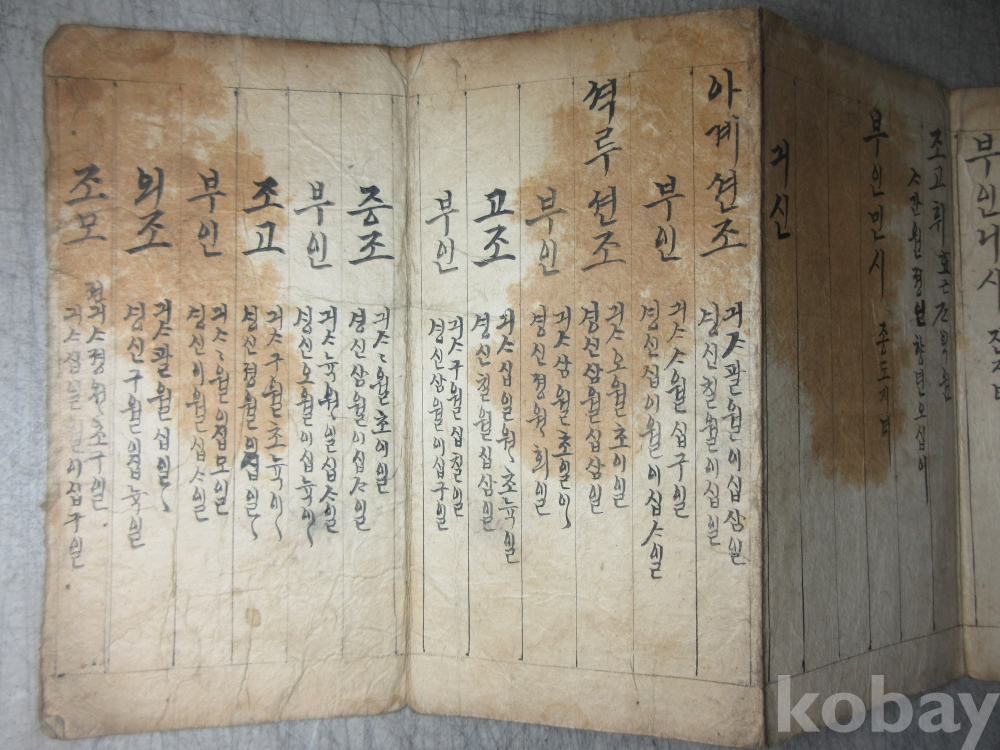 부인니시
조고휘
ᄉᆞ간원정언향년오십이
부인민시
긔신
아계션조
긔ᄉᆞ팔월이십삼일
경신칠월이십일
부인
긔ᄉᆞᄉᆞ월십구일
경신십이월이십ᄉᆞ일
션조
긔ᄉᆞ오월초이일
경신삼월십삼일
부인
긔ᄉᆞ삼월초일일
경신졍월회일
고조
긔ᄉᆞ십일월초뉵일
경신칠월십삼일
부인
긔ᄉᆞ구월십칠일
경신삼월이십구일
증조
경신삼월이십ᄉᆞ일
부인
경신오월이십뉵일
조고
긔ᄉᆞ구월초뉵일
경신졍월이십일
부인
경신이월십ᄉᆞ일
외조
긔ᄉᆞ팔월십일
경신구월이십뉵일
조모
긔ᄉᆞ졍월초구일
긔ᄉᆞ십일월이십구일
kobay